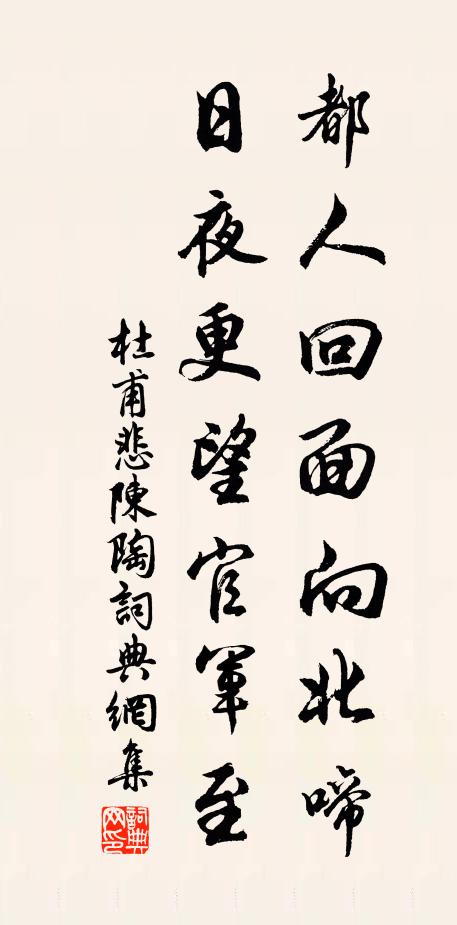 都人回面向北啼
日夜更望官軍至
杜甫悲陳陶詞典網集
詞典網印